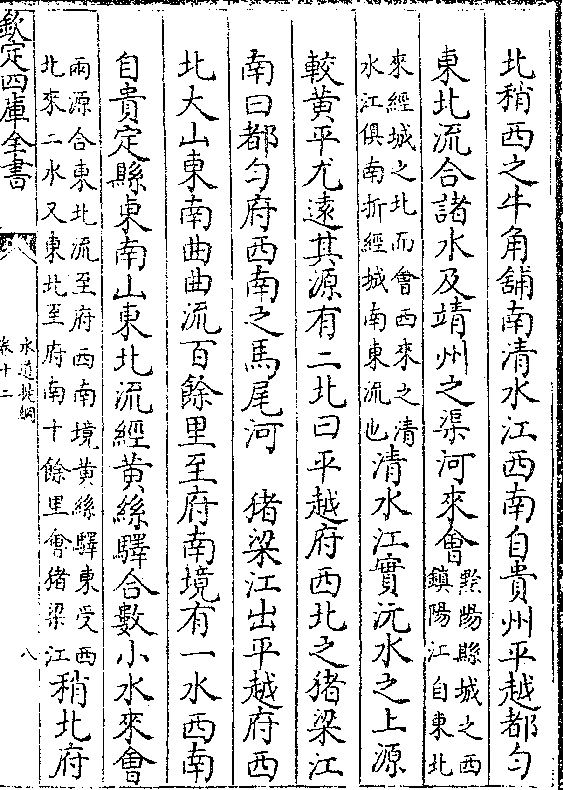 北稍西之牛角舖南清水江西南自貴州平越都勻
東北流合諸水及靖州之渠河來會黔陽縣城之西鎮陽江自東北
來經城之北而會西來之清水江俱南折經城南東流也清水江實沅水之上源
較黃平尤遠其源有二北曰平越府西北之猪梁江
南曰都勻府西南之馬尾河　猪梁江出平越府西
北大山東南曲曲流百餘里至府南境有一水西南
自貴定縣東南山東北流經黃絲驛合數小水來會
兩源合東北流至府西南境黃絲驛東受西北來二水又東北至府南十餘里會猪梁江稍北府
欽定四庫全書
水道提綱
卷十二
八